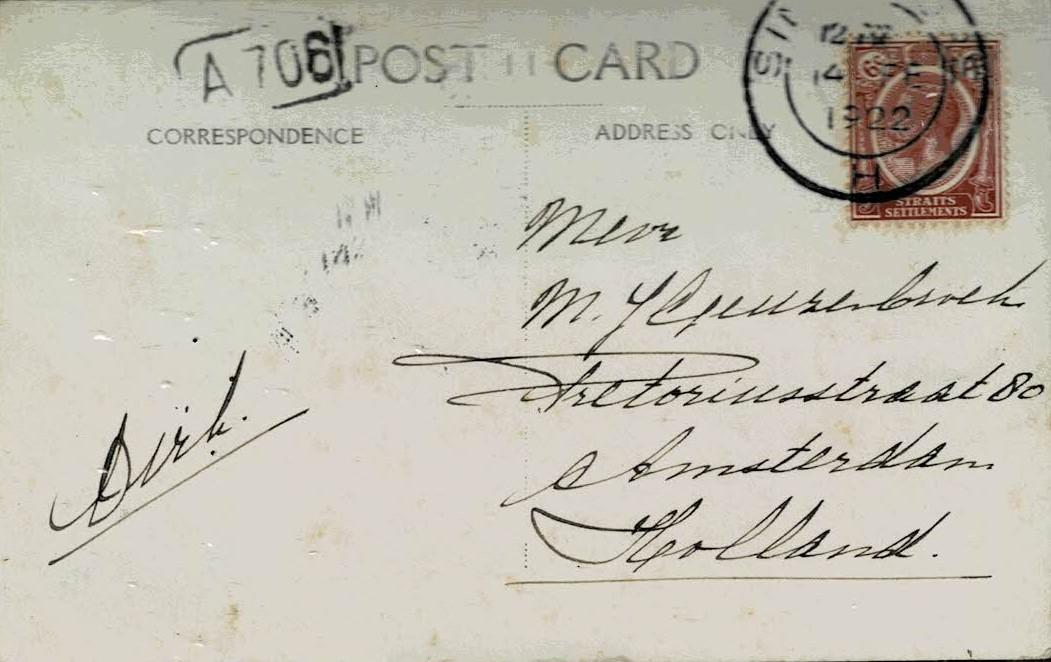 A 706
POST CARD
CORRESPONDENCE
ADDRESS ONLY
12
14
1922
H
STRAITS
SETTLEMENTS
Mevr
M. Geuzenbroek
Pretoriusstraat 80
Amsterdam
Holland.
Dirk.